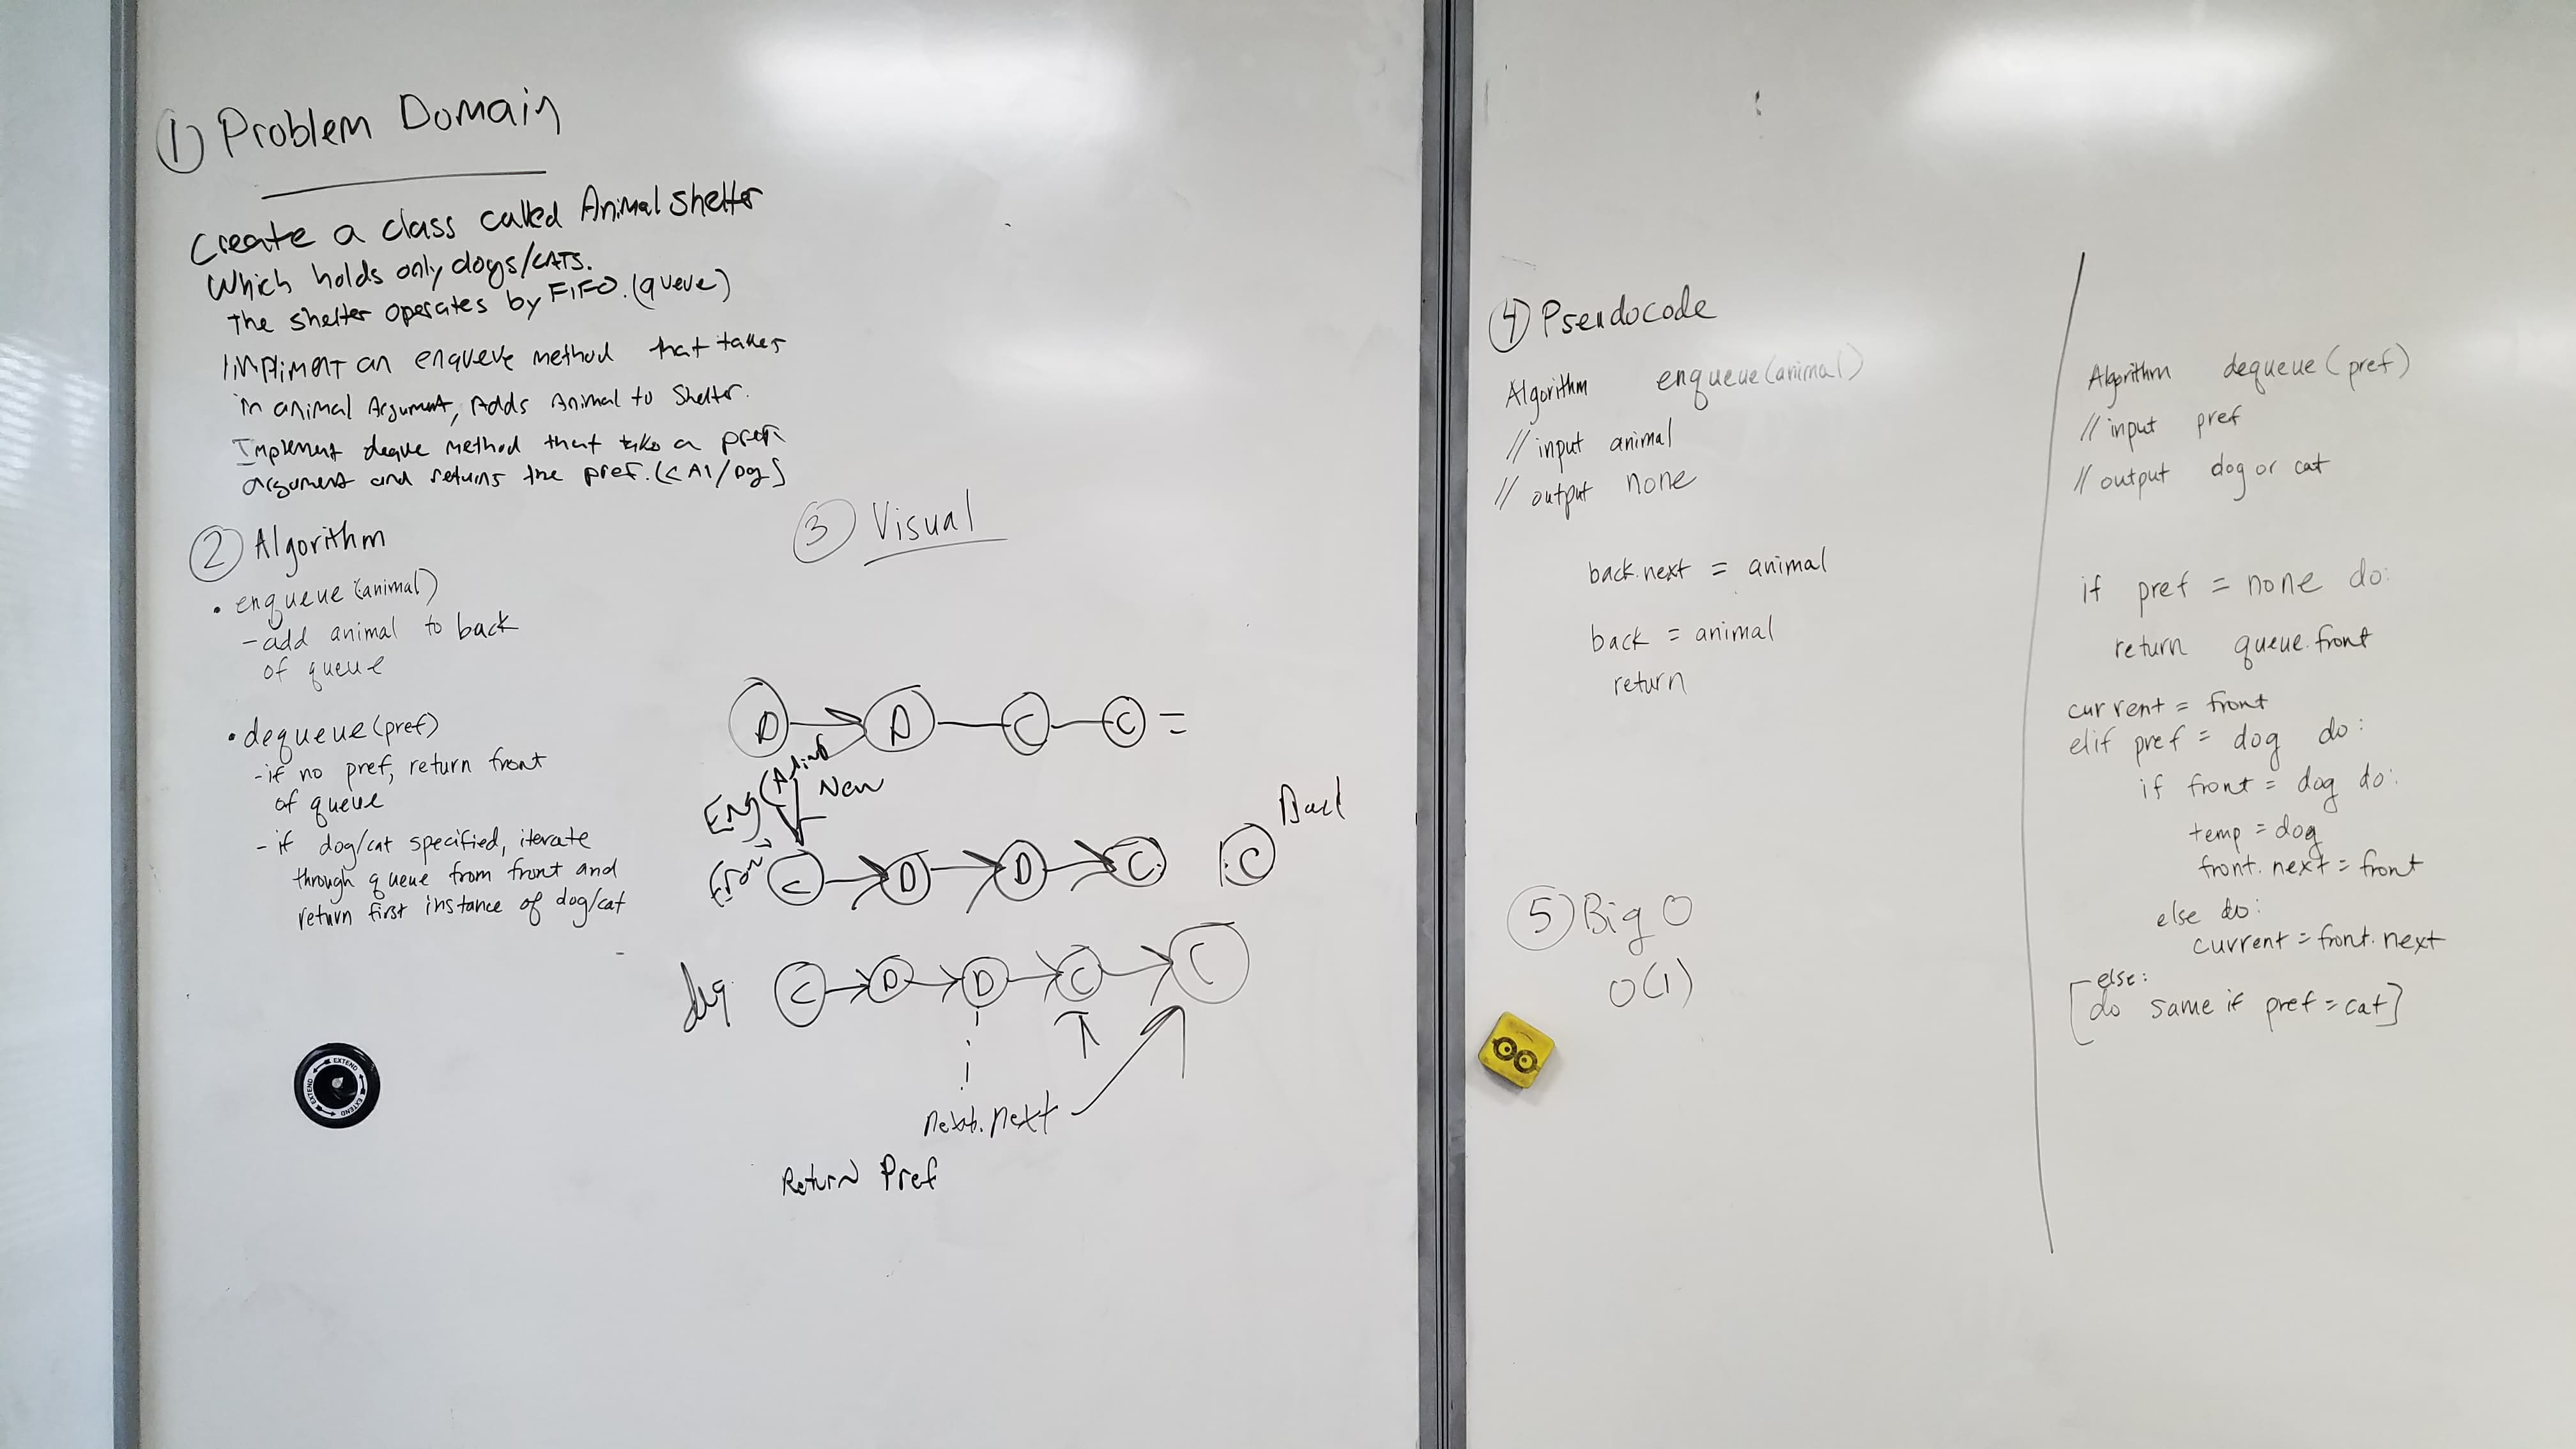 ① Problem Domain
Create a class called Animal Shelter
Which holds only dogs/CATS.
The shelter operates by FIFO. (queue)
Impliment an enqueue method that takes
in animal Argument, Adds Animal to Shelter.
Implement deque method that take a pref
argument and returns the pref. (CAT/Dog)
② Algorithm
• enqueue (animal)
- add animal to back
of queue
• dequeue (pref)
- if no pref, return front
of queue
- if dog/cat specified, iterate
through queue from front and
return first instance of dog/cat
③ Visual
D D C C =
Enq New
Front C D D C C Back
deq C D D C C
next.next
Return Pref
EXTEND EXTEND EXTEND
④ Pseudocode
Algorithm enqueue (animal)
// input animal
// output none
back.next = animal
back = animal
return
⑤ Big O
O(1)
Algorithm dequeue (pref)
// input pref
// output dog or cat
if pref = none do:
return queue.front
current = front
elif pref = dog do:
if front = dog do:
temp = dog
front.next = front
else do:
current = front.next
else:
[do same if pref = cat]